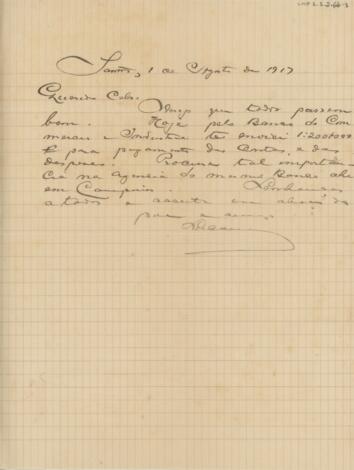 Santos, 1 de Agosto de 1917
Querido Cabo.
Desejo que todos passem
bem. Hoje pelo Banco do Com
mercio e Industria te enviei 1:200$000
para pagamento das contas, e das
despesas. Procures tal importan-
cia na agencia do mesmo Banco ahi
em Campinas.
a todos e aceite um abraço do
pae e amigo